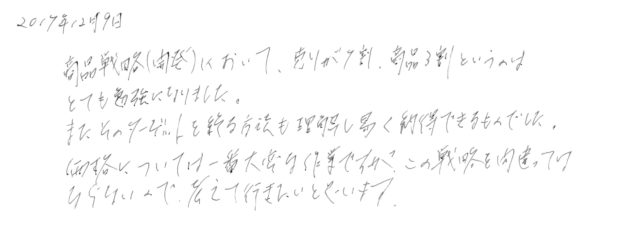 2017年12月9日
商品戦略(開発)において、売りが7割、商品3割というのは
とても勉強になりました。
またそのターゲットを絞る方法も理解し易く納得できるものでした。
価格については一番大変な作業ですが、この戦略を間違っては
ならないので、考えて行きたいと思います。